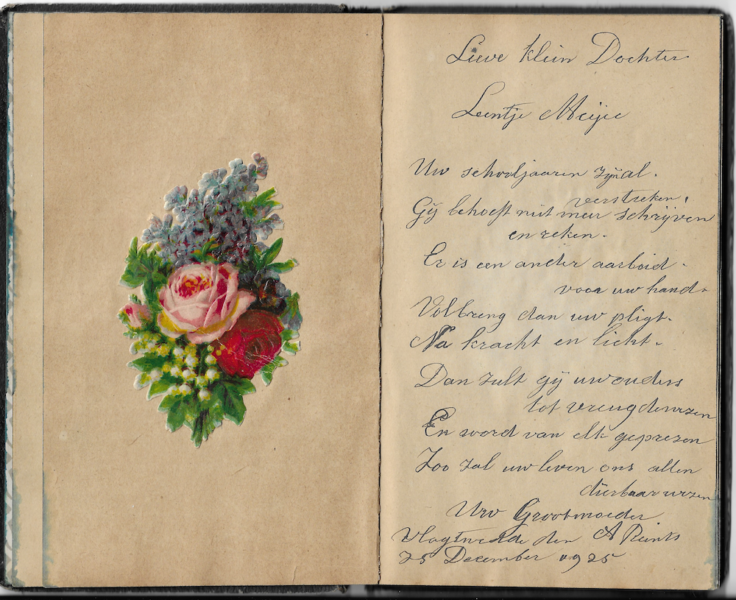 Lieve klein Dochter
Leentje Meijie
Uw schooljaaren zijn al.
verstreken,
Gij behoeft niet meer schrijven
en reken.
Er is een ander aarbeid.
voor uw hand.
Volbreng dan uw pligt.
Na kracht en licht.
Dan zult gij uw ouders
tot vreugde wezen
En word van elk geprezen
Zoo zal uw leven ons allen
dierbaar wezen
Uw Grootmoeder
A
Vlagtwedde den
25 December 1925